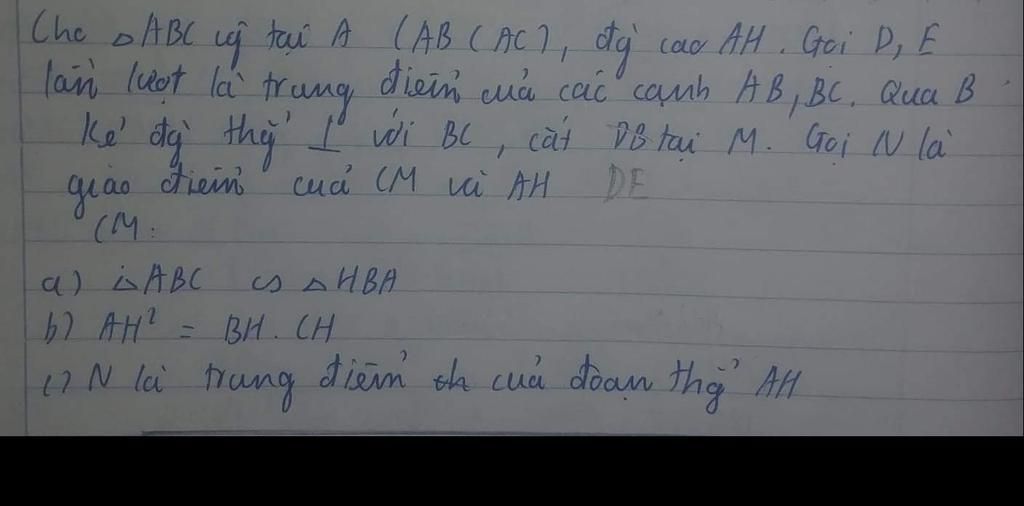 Cho △ABC vg tại A (AB < AC), đg cao AH. Gọi D, E
lần lượt là trung điểm của các cạnh AB, BC. Qua B
kẻ đg thg ⊥ với BC, cắt DB tại M. Gọi N là
giao điểm của CM và AH DE
CM:
a) △ABC ∽ △HBA
b) AH² = BH. CH
c) N là trung điểm của đoạn thg AH